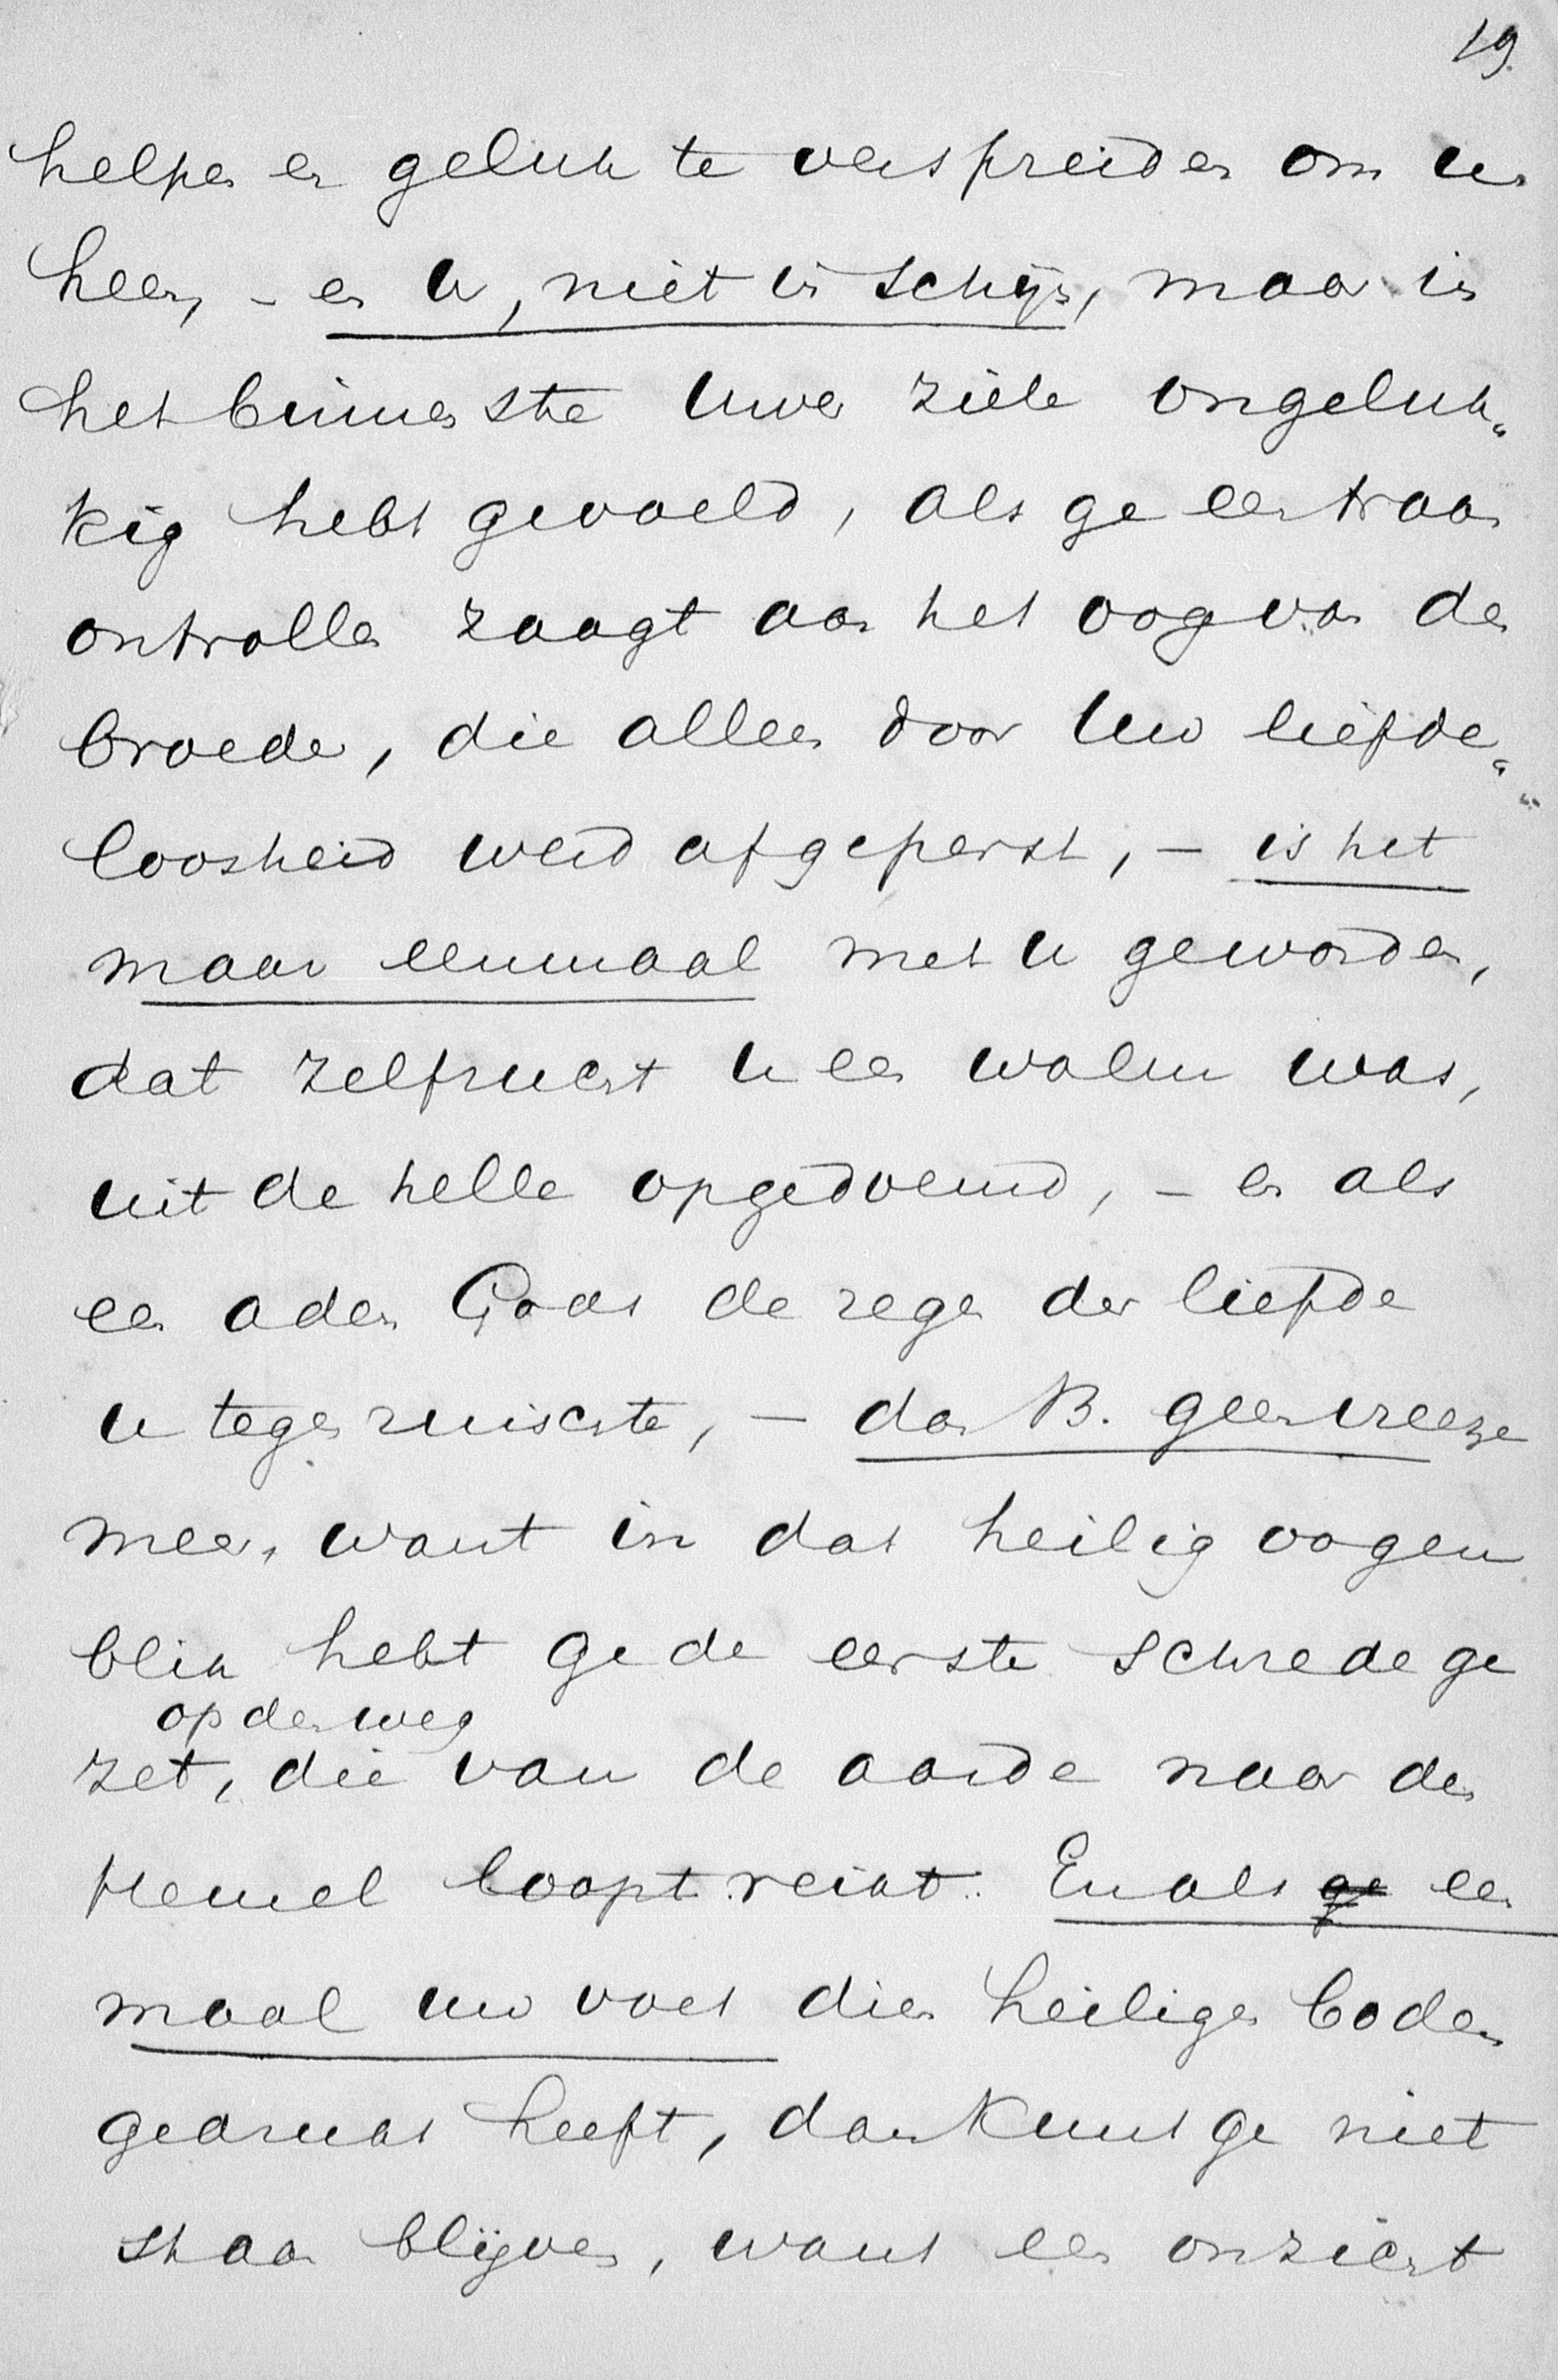 19.
helpen en geluk te verspreiden om u
heen, - en u, niet in schijn, maar in
het binnenste uwer ziele ongeluk„
kig hebt gevoeld, als ge een traan
ontrollen zaagt aan het oog van den
broeder, die alleen door Uw liefde„
loosheid werd afgeperst, - is het
maar eenmaal met u geworden,
dat zelfzucht u een walm was,
uit de helle opgedoemd, - en als
een adem Gods de zegen der liefde
u tegen ruischte, - dan B. geen vreeze
meer, want in dat heilig oogen
blik hebt ge de eerste schrede ge
op den weg
zet, die van de aarde naar den
Hemel loopt reikt. En als ge een
maal uw voet dien heiligen bodem
gedrukt heeft, dan kunt ge niet
staan blijven, want een onzicht